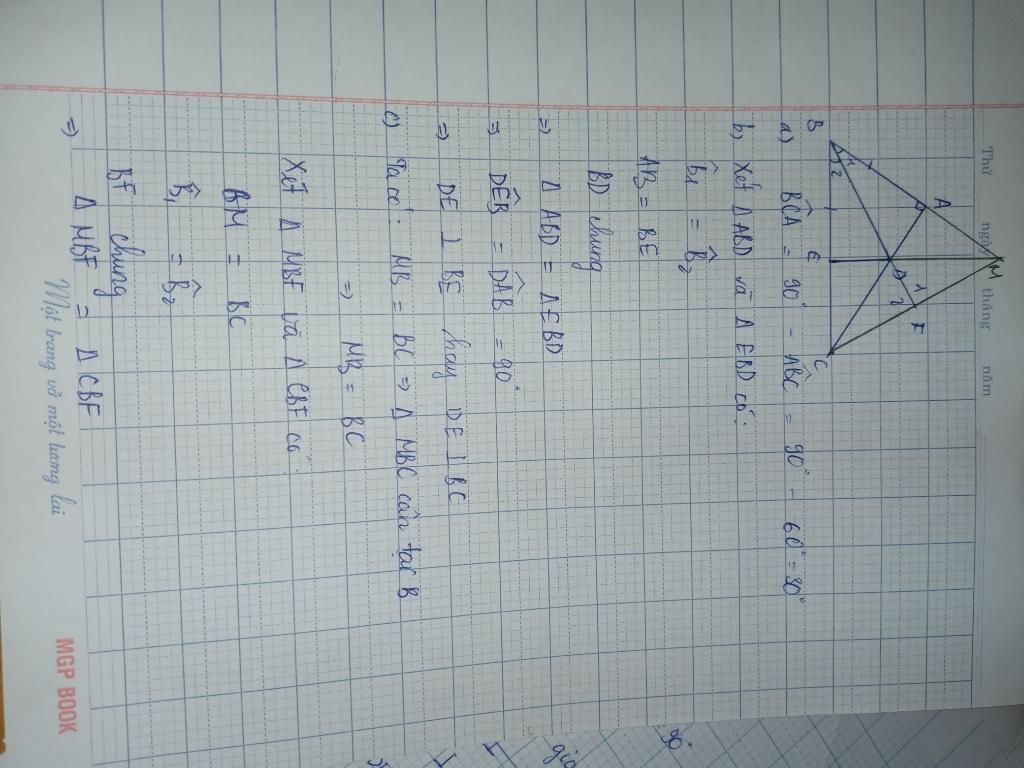 Thứ ngày tháng năm
M
A
F
D
1
2
B
1
2
E
C
a) BĈA = 90° - AB̂C = 90° - 60° = 30°
b) Xét Δ ABD và Δ EBD có:
B̂₁ = B̂₂
AB = BE
BD chung
=> Δ ABD = Δ EBD
=> DÊB = DÂB = 90°
=> DE ⊥ BE hay DE ⊥ BC
c) Ta có: MB = BC => Δ MBC cân tại B
=> MB = BC
Xét Δ MBF và Δ CBF có:
BM = BC
B̂₁ = B̂₂
BF chung
=> Δ MBF = Δ CBF
Một trang vở một tương lai
MGP BOOK
90°